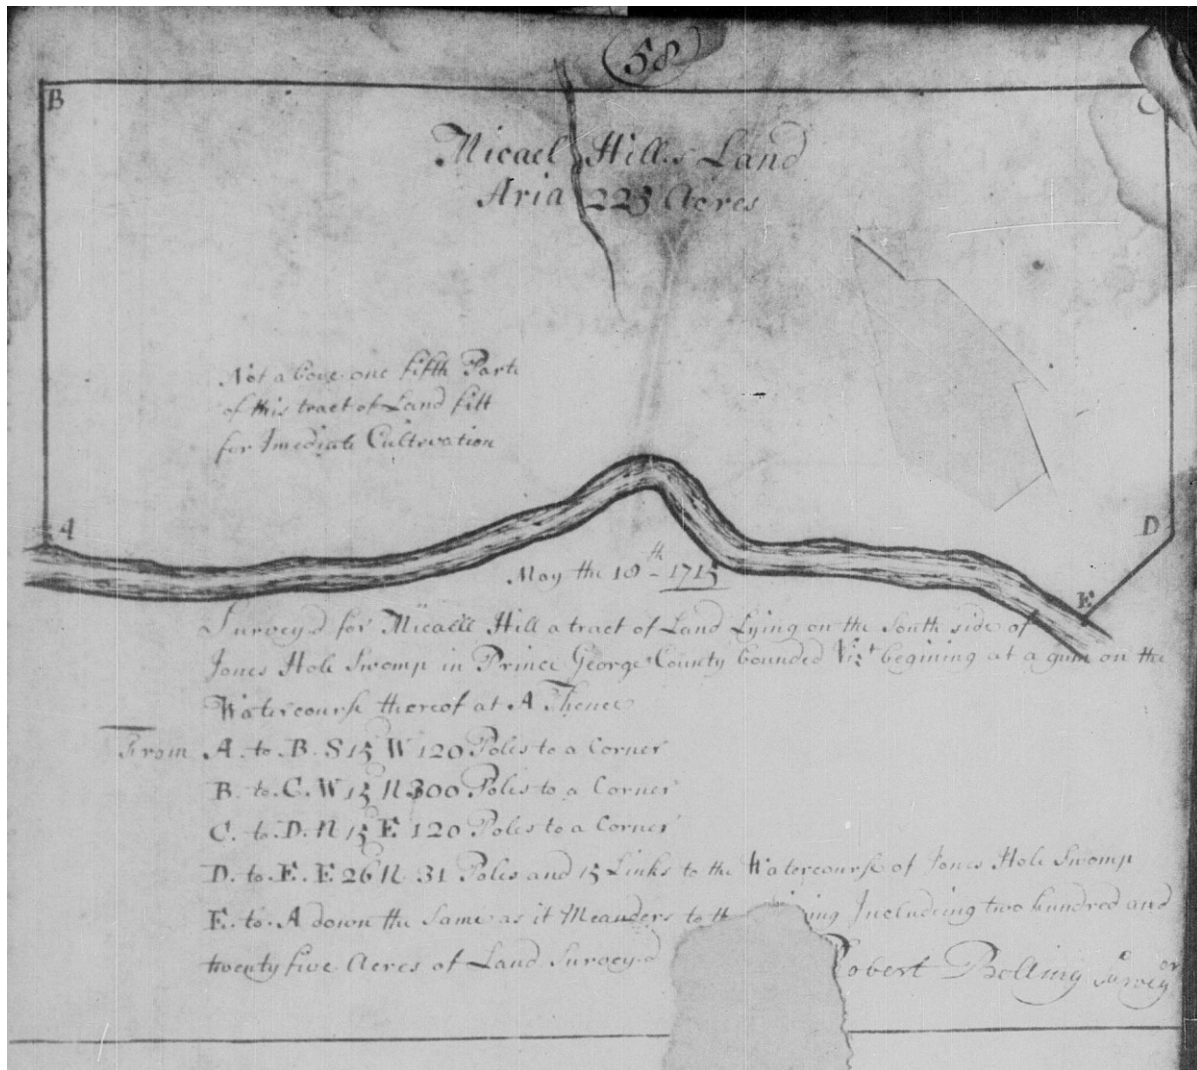 58
B
C
Micael Hill.s Land
Aria 225 Acres
Not above one fifth Parte
of this tract of Land fitt
for Imediate Cultevation
A
D
E
May the 18th - 1715
Survey,d for Micaell Hill a tract of Land Lying on the South side of
Jones Hole Swomp in Prince George County bounded Vizt begining at a gum on the
Watercourse thereof at A Thence
From A. to. B. S 15 W 120 Poles to a Corner
B. to. C. W 15 N 300 Poles to a Corner
C. to. D. N 15 E 120 Poles to a Corner
D. to. E. E 26 N 31 Poles and 15 Links to the Watercourse of Jones Hole Swomp
E. to. A down the Same as it Meanders to th ing Including two hundred and
twenty five Acres of Land Survey,d
Robert Bolling Survey.or